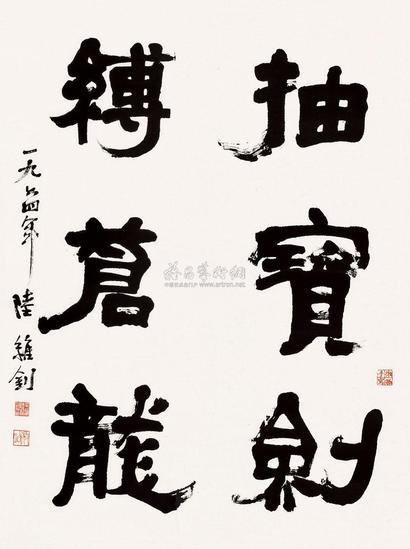 抽寶劍
縛蒼龍
一九六四年 陸維釗
雅昌藝術網
www.artron.net